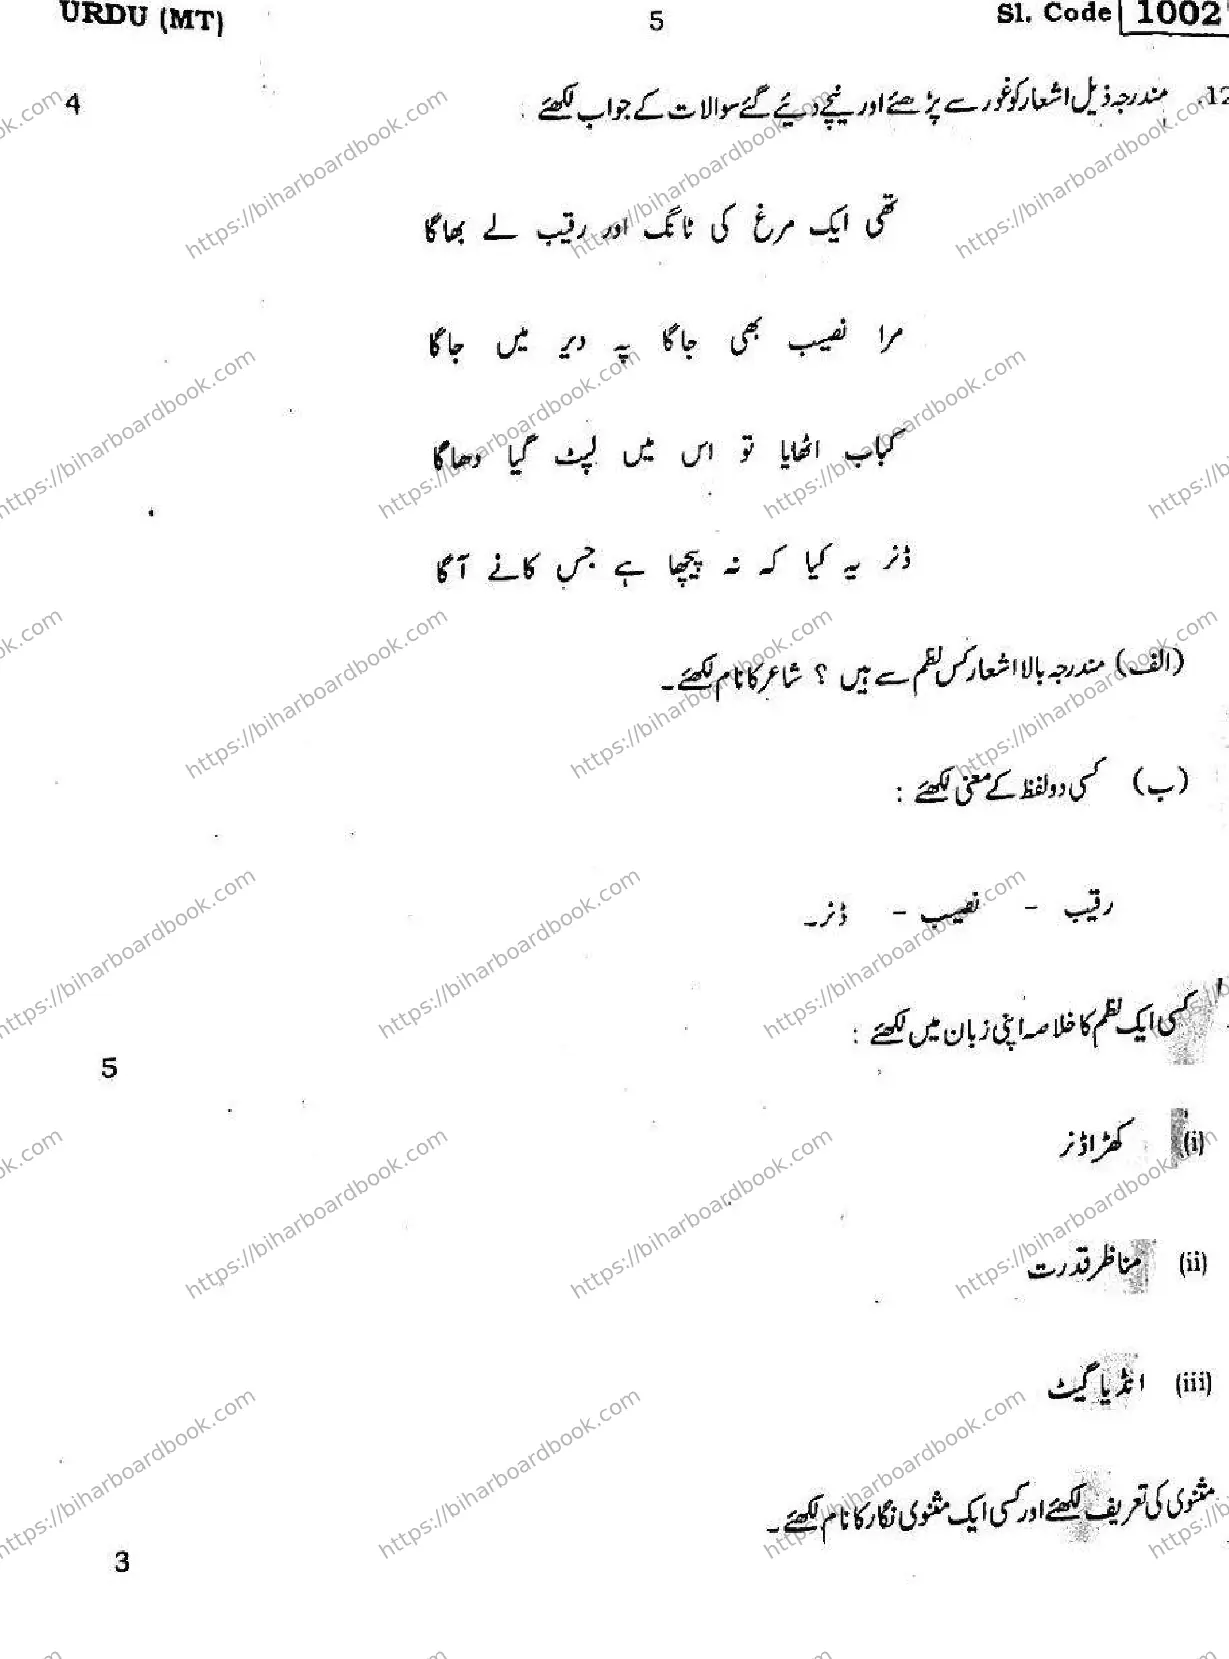 URDU (MT) 5 Sl. Code 1002
12. مندرجہ ذیل اشعار کو غور سے پڑھئے اور نیچے دیئے گئے سوالات کے جواب لکھئے : 4
تھی ایک مرغ کی ٹانگ اور رقیب لے بھاگا
مرا نصیب بھی جاگا پہ دیر میں جاگا
کباب اٹھایا تو اس میں لپٹ گیا دھاگا
ڈنر یہ کیا کہ نہ پیچھا ہے جس کا نے آگا
(الف) مندرجہ بالا اشعار کس نظم سے ہیں ؟ شاعر کا نام لکھئے ۔
(ب) کسی دو لفظ کے معنی لکھئے :
رقیب - نصیب - ڈنر ۔
کسی ایک نظم کا خلاصہ اپنی زبان میں لکھئے :
5
(i) کھڑا ڈنر
(ii) مناظر قدرت
(iii) انڈیا گیٹ
مثنوی کی تعریف لکھئے اور کسی ایک مثنوی نگار کا نام لکھئے ۔
3
https://biharboardbook.com